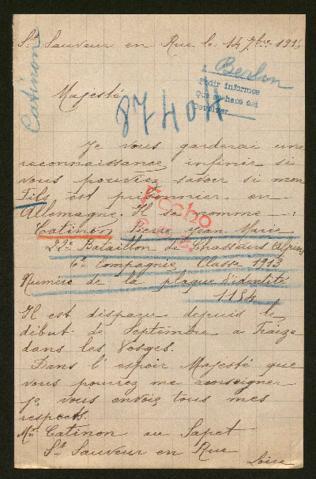 St Sauveur en Rue le 14 7bre 191
Catinon
à Berlin
Pedir informes
Majesté
87404
Je vous garderai une
reconnaissance infinie si
vous pouviez savoir si mon
fils est prisonnier en
Allemagne. Il se nomme :
Catinon Pierre Jean Marie
22e Bataillon de Chasseurs Alpins
6e Compagnie Classe 1913
Numéro de la plaque d'identité
1154
Il est disparu depuis le
début de Septembre a Fraize
dans les Vosges.
Dans l'espoir Majesté que
vous pourrez me renseigner
je vous envoie tous mes
respects.
Catinon au Sapet
St Sauveur en Rue
Loire